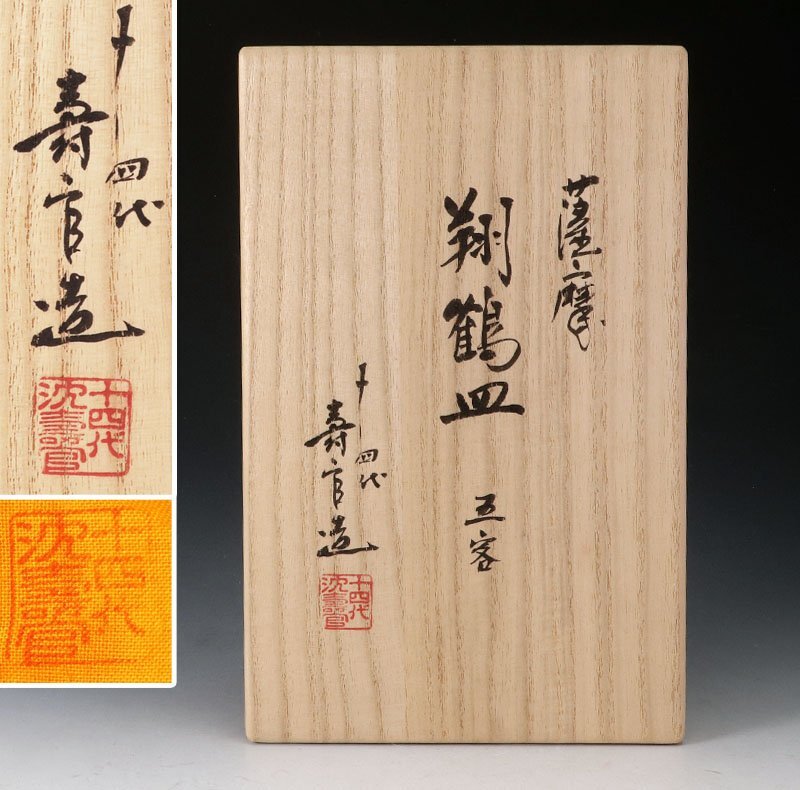 薩摩
翔鶴皿
五客
十四代
壽官造
十四代
沈壽官
十四代
壽官造
十四代
沈壽官
十四代
沈壽官